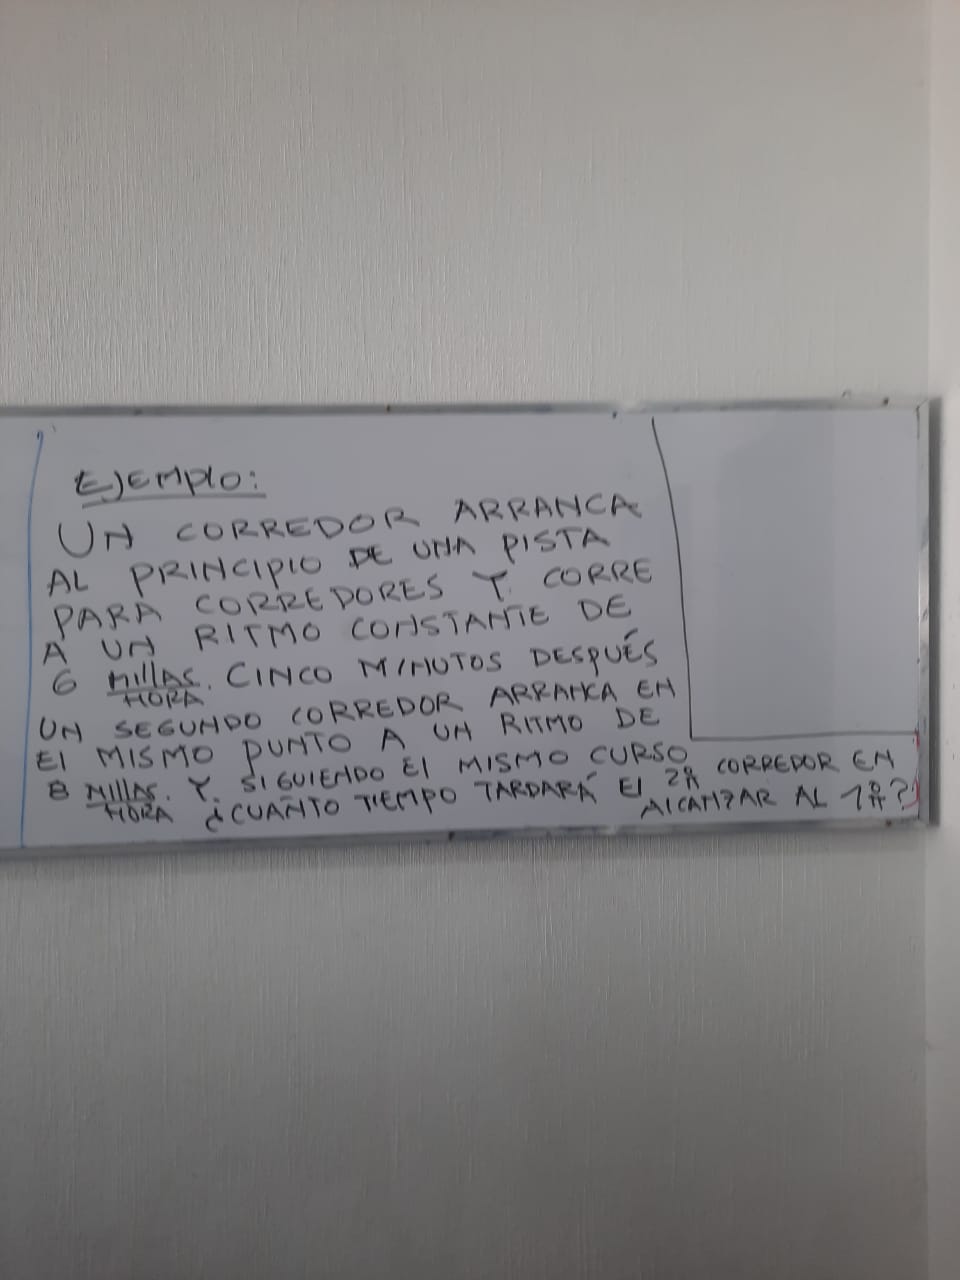 EJEMPlO:
UN CORREDOR ARRANCA
AL PRINCIPIO DE UNA PISTA
PARA CORREDORES Y CORRE
A UN RITMO CONSTANTE DE
6 MILLAS/HORA. CINCO MINUTOS DESPUÉS
UN SEGUNDO CORREDOR ARRANCA EN
El MISMO PUNTO A UN RITMO DE
8 MILLAS/HORA. Y. SIGUIENDO El MISMO CURSO
¿CUANTO TIEMPO TARDARÁ El 2º CORREDOR EN
ALCANZAR AL 1º?